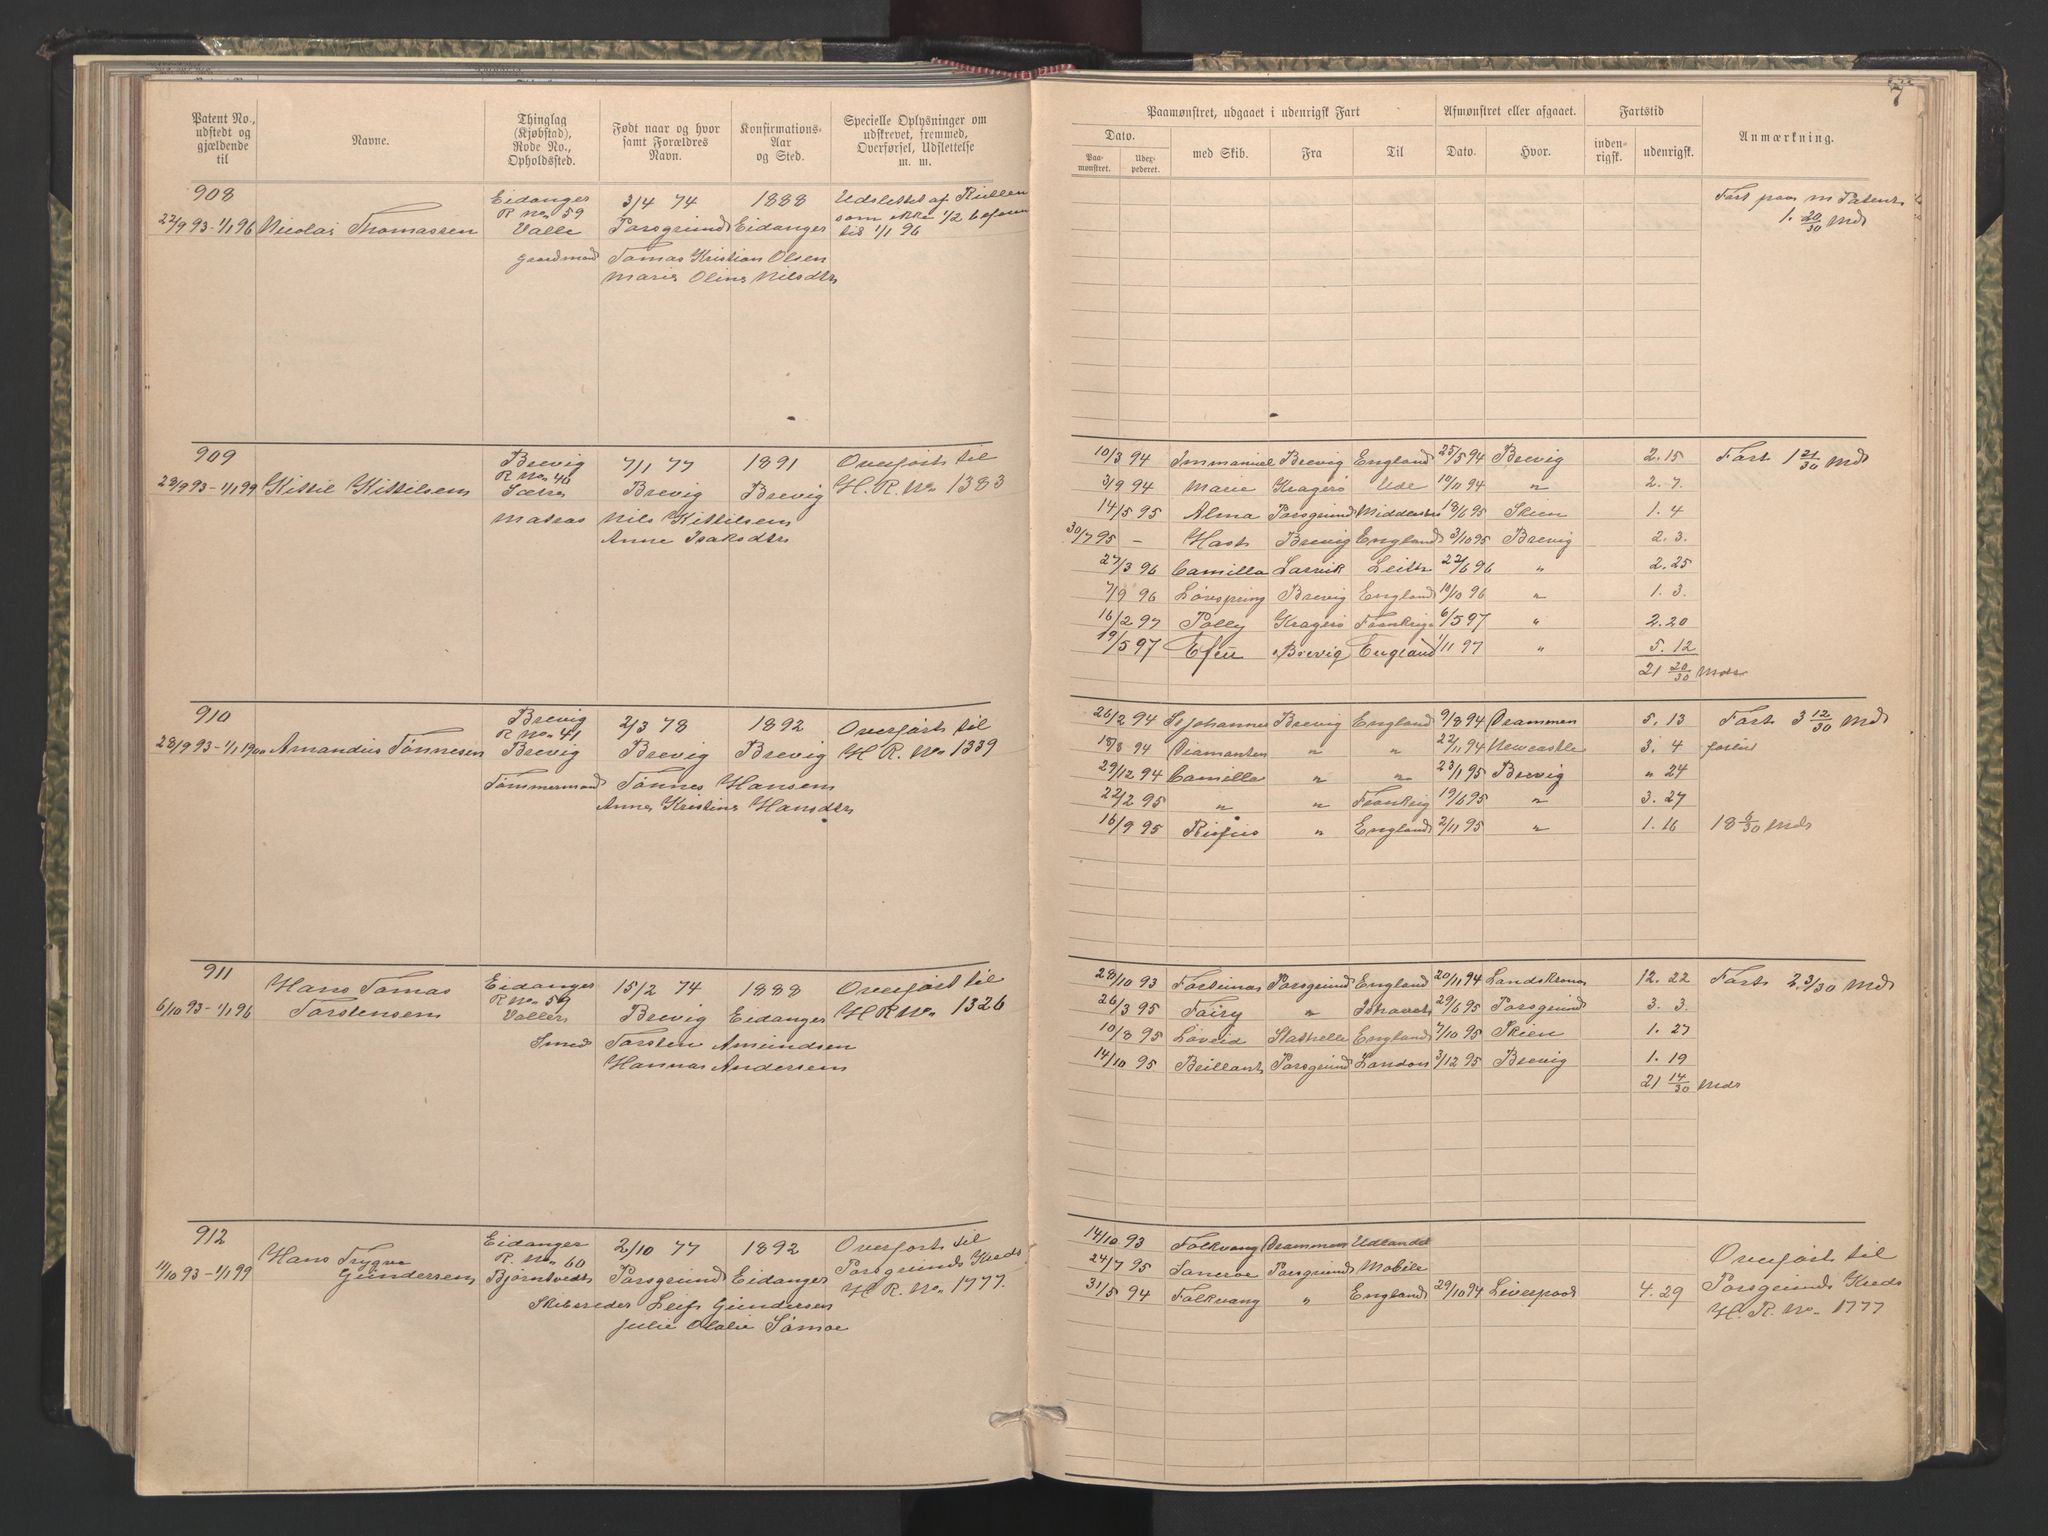 7
Patent No., udstedt og gjældende til
Navne.
Thinglag (Kjøbstad), Rode No., Opholdssted.
Født naar og hvor samt Forældres Navn.
Konfirmations-Aar og Sted.
Specielle Oplysninger om udskrevet, fremmed, Overførsel, Udslettelse m. m.
Paamønstret, udgaaet i udenrigsk Fart
Afmønstret eller afgaaet.
Fartstid
Anmærkning.
Dato.
Paamønstret.
Udexpederet.
med Skib.
Fra
Til
Dato.
Hvor.
indenrigsk.
udenrigsk.
908
Eidanger
3/4 74
1888
Udslettet af Rullen
R No. 59
som ikke 1/2 befaren
22/9 93-1/1 96
Nicolai Thomassen
Valle
Porsgrund
Eidanger
til 1/1 96
gaardmand
Tomas Kristian Olsen
Marie Oline Nilsdtr
Fart paa m Patent
1. 20/30 Mdr
909
Brevig
7/1 77
1891
Overført til
R No. 40
28/9 93-1/1 99
Kittil Kittilsen
Sætre
Brevig
Brevig
H. R. No. 1383
Matros
Nils Kittilsen
Anne Isaksdtr
10/3 94 Immanuel Brevig England 25/5 94 Brevig 2. 15 Fart 1 21/30 Mdr
3/9 94 Marie Kragerø Ude 10/11 94 " 2. 7.
14/5 95 Alma Porsgrund 18/6 95 Skien 1. 4
30/7 95 - Hast Brevig England 3/10 95 Brevig 2. 3.
27/3 96 Camilla Larvik Leith 22/6 96 " 2. 25
7/9 96 Løvspring Brevig England 10/10 96 " 1. 3.
16/2 97 Polly Kragerø Frankrig 6/5 97 " 2. 20
19/5 97 Brevig England 1/11 97 " 5. 12
21 20/30 Mdr
910
Brevig
2/3 78
1892
Overført til
R No. 41
28/9 93-1/1 1900
Amandus Tønnesen
Brevig
Brevig
Brevig
H R. No. 1339
Tømmermand
Tønnes Hansen
Anne Kristine Hansdtr
26/2 94 St Johannes Brevig England 9/8 94 Drammen 5. 13 Fart 3 12/30 Md
18/8 94 Diamanten " " 22/11 94 Newcastle 3. 4
29/12 94 Camilla " " 23/1 95 Brevig " 24
22/2 95 " " Frankrig 19/6 95 " 3. 27
16/9 95 Rufus " England 2/11 95 " 1. 16 18 6/30 Mdr
911
Hans Tomas
Eidanger
15/2 74
1888
Overført til
R No. 59
6/10 93-1/1 96
Torstensen
Vallen
Brevig
Eidanger
H R No. 1326
Smed
Torsten Amundsen
Hanna Andersen
28/10 93 Fortuna Porsgrund England 20/11 94 Landskrona 12. 22 Fart 2. 3/30 Md
26/3 95 Fairy " 29/6 95 Porsgrund 3. 3.
10/8 95 Løveid Stathelle England 7/10 95 Skien 1. 27
14/10 95 Brillant Porsgrund London 3/12 95 Brevig 1. 19
21 14/30 Mdr
912
Eidanger
2/10 77
1892
Overført til
Hans Trygve
R. No. 60
Porsgrunds Kreds
11/10 93-1/1 99
Gundersen
Bjørntvedt
Porsgrund
Eidanger
H. R. No. 1777.
Skibsreder
Leif Gundersen
Julie Olalie
14/10 93 Folkvang Drammen Udlandet
24/7 95 Porsgrund Mobile
31/5 94 Folkvang " England 29/10 94 Liverpool 4. 29
Overført til
Porsgrunds Kreds
H. R. No. 1777